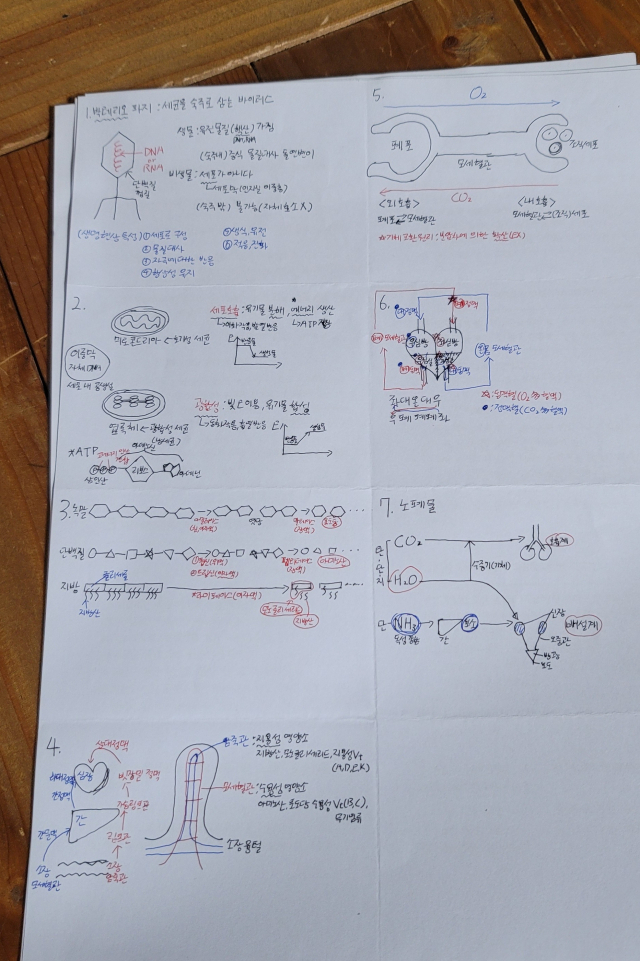 1. 박테리오 파지 : 세균을 숙주로 삼는 바이러스
생물 : 유전물질(핵산) 가짐
DNA
or
RNA
단백질
껍질
(숙주내) 증식, 물질대사, 돌연변이
비생물 : 세포가 아니다
세포막(인지질 이중층)
(숙주 밖) 불가능 (자체효소 X)
(생명현상 특성) ① 세포로 구성
② 물질대사
③ 자극에 대한 반응
④ 항상성 유지
⑤ 생식, 유전
⑥ 적응, 진화
2.
미토콘드리아 ← 호기성 세균
이중막
자체 DNA
세포 내 공생설
엽록체 ← 광합성 세균
세포호흡 : 유기물 분해, 에너지 생산
광합성 : 빛E 이용, 유기물 합성
E
*ATP
리보스
아데닌
3. 녹말
엿당
포도당
단백질
아미노산
지방
글리세롤
지방산
모노글리세리드
지방산
4.
상대정맥
심장
하대정맥
간정맥
빗장밑 정맥
간
가슴림프관
간문맥
림프관
소장
모세혈관
소장
암죽관
암죽관 : 지용성 영양소
지방산, 모노글리세리드, 지용성 Vt
(A, D, E, K)
모세혈관 : 수용성 영양소
아미노산, 포도당, 수용성 Vt(B, C),
무기염류
소장 융털
5.
O₂
폐포
모세혈관
조직세포
CO₂
<외호흡>
폐포 ⇄ 모세혈관
<내호흡>
모세혈관 ⇄ (조직)세포
*기체교환원리 : 분압차에 의한 확산(E X)
6.
폐동맥
폐정맥
대동맥
좌심방
우심방
좌심실
우심실
온몸 모세혈관
좌대온대우
우폐폐폐좌
: 동맥혈(O₂ 多 혈액)
: 정맥혈(CO₂ 多 혈액)
7. 노폐물
탄
단
지
CO₂
호흡계
H₂O
수증기(기체)
단
NH₃
독성 강함
간
요소
콩팥
오줌관
방광
요도
배설계